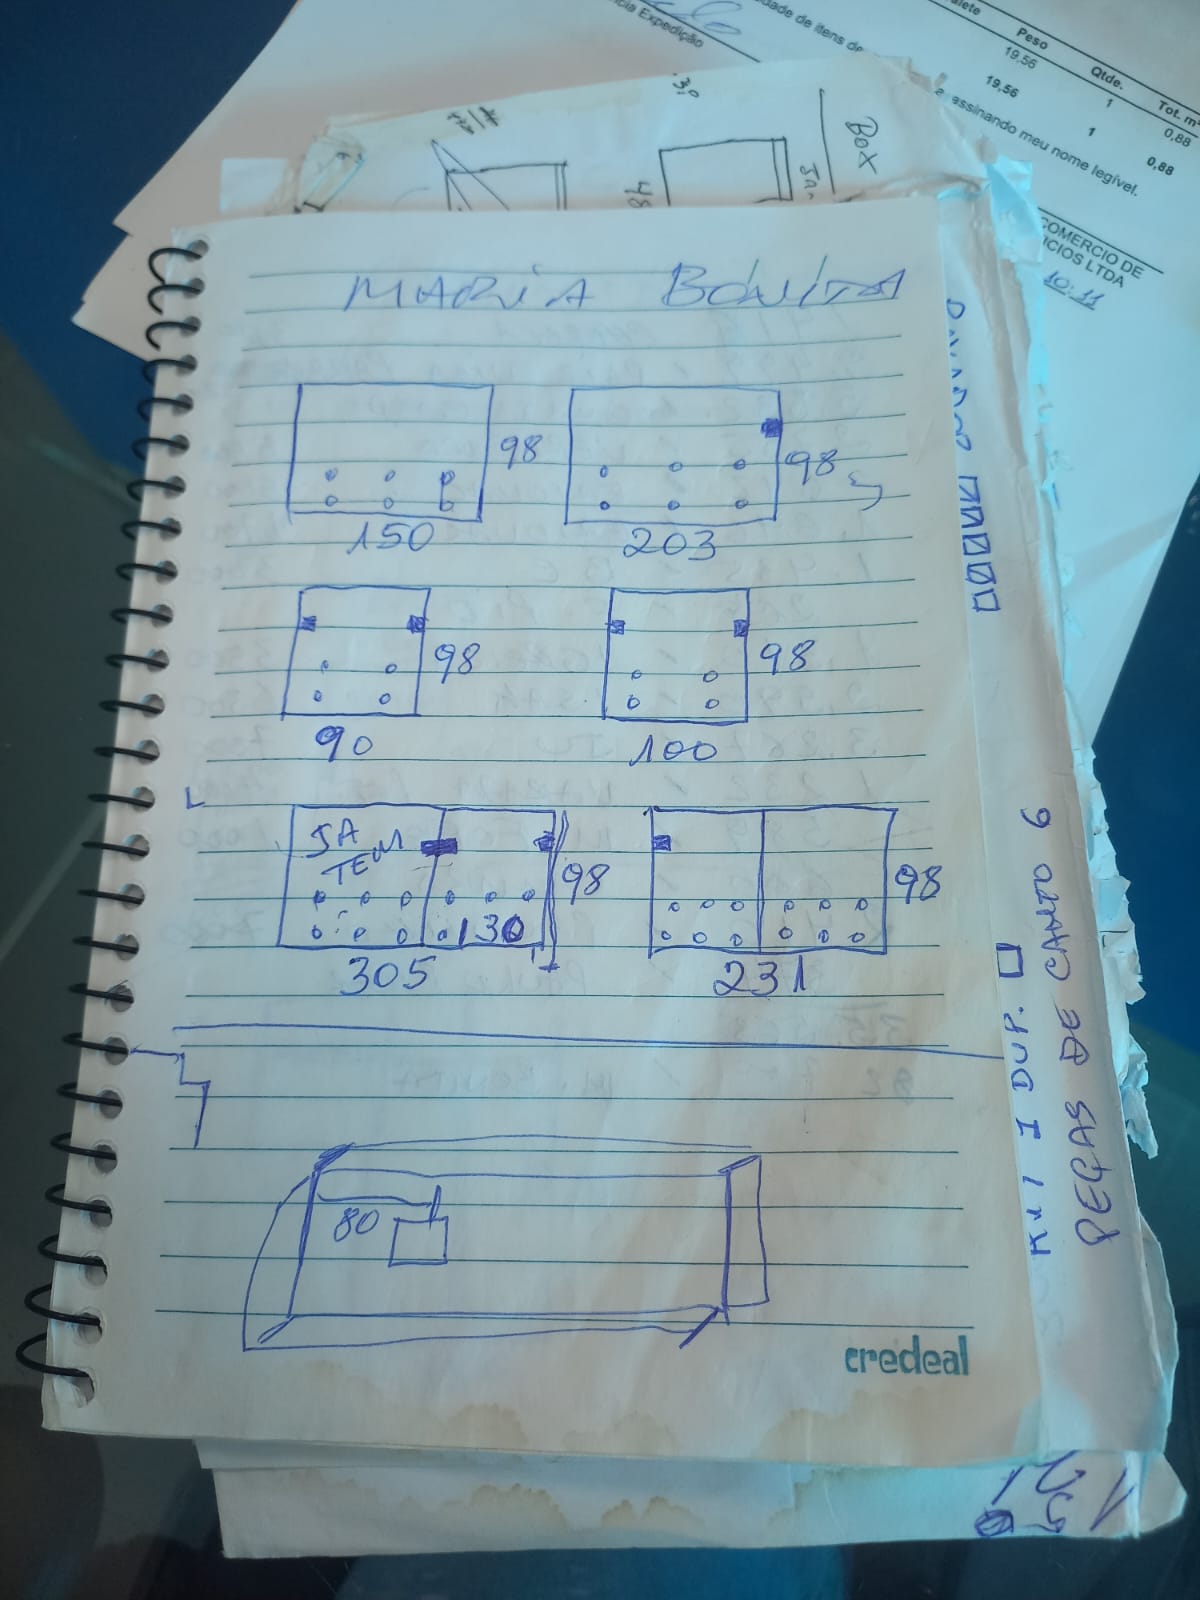 cia Expedição
Peso
Qtde.
Tot. m²
19,56
1
0,88
19,56
1
0,88
assinando meu nome legível.
COMERCIO DE
ICIOS LTDA
10:11
BOX
MARIA BONITA
98
98
150
203
98
98
90
100
JA
TEM
98
98
130
305
231
80
KIT 1 DUP.
PEÇAS DE CANTO 6
credeal